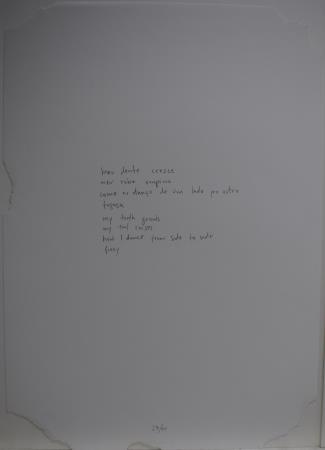 meu dente cresce
meu rabo empina
como eu danço de um lado pro outro
fogosa
my tooth grows
my tail raises
how I dance from side to side
fiery